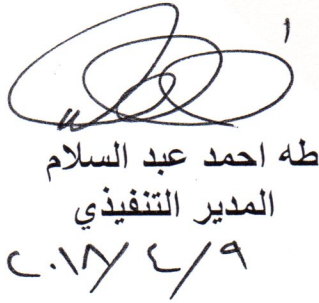 طه احمد عبد السلام
المدير التنفيذي
٢٠١٧/٤/٩